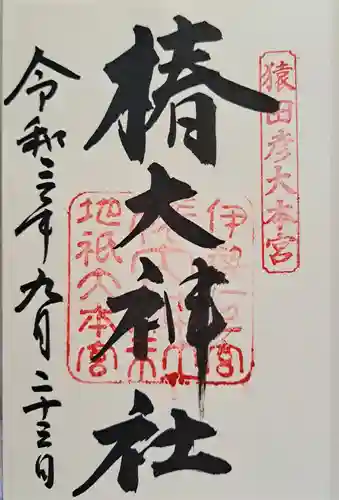 猿田彦大本宮
椿大神社
伊勢一之宮
地祇大本宮
令和三年九月二十三日